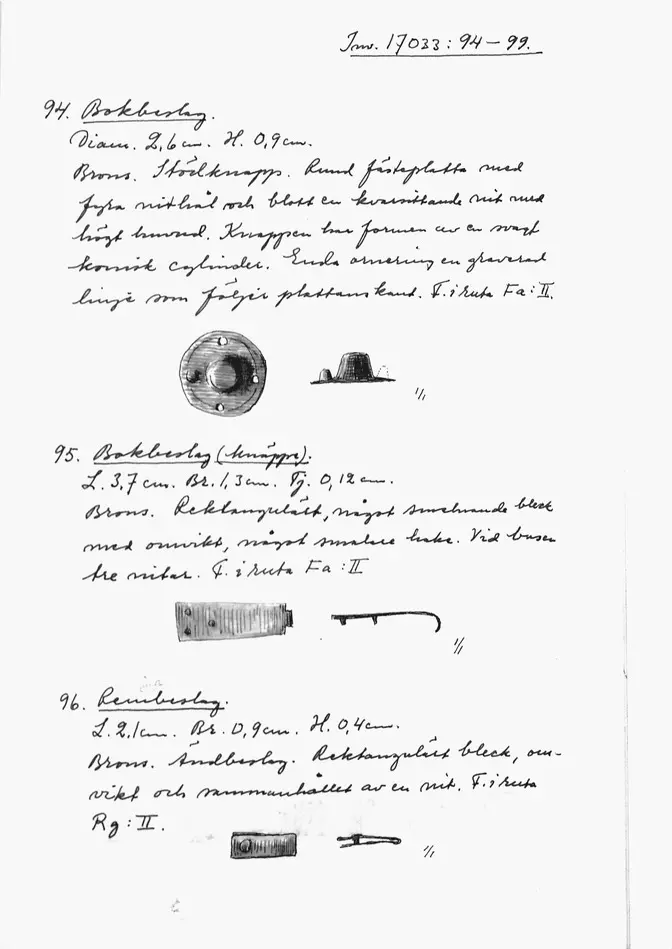 Inv. 17033: 94 – 99.
94. Bokbeslag.
Diam. 2,6 cm. H. 0,9 cm.
Brons. Stödknapp. Rund fästeplatta med
fyra nithål och blott en kvarsittande nit med
högt huvud. Knappen har formen av en svagt
konisk cylinder. Enda ornering en graverad
linje som följer plattans kant. F. i ruta Fa: II.
1/1
95. Bokbeslag (knäppe).
L. 3,7 cm. Br. 1,3 cm. Tj. 0,12 cm.
Brons. Rektangulärt, något smalnande bleck
med omvikt, något smalare hake. Vid basen
tre nitar. F. i ruta Fa: II
1/1
96. Rembeslag.
L. 2,1 cm. Br. 0,9 cm. H. 0,4 cm.
Brons. Ändbeslag. Rektangulärt bleck, om-
vikt och sammanhållet av en nit. F. i ruta
Rg: II.
1/1